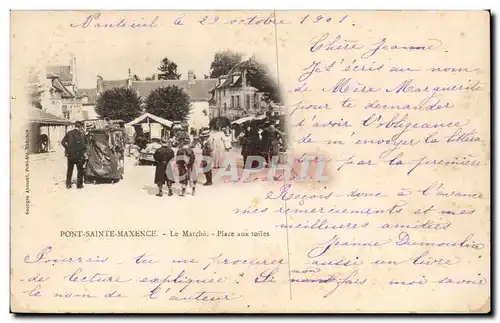 Nanteuil le 29 octobre 1901.
Chère Jeanne
Je t'écris au nom
de Mère Marguerite
pour te demander
d'avoir l'obligeance
de m'envoyer la
par la première
Reçois donc à l'avance
mes remerciements et mes
meilleures amitiés
Jeanne Dumoulin
PONT-SAINTE-MAXENCE. - Le Marché. - Place aux toiles
Pourrais-tu me procurer aussi un livre
de lecture expliquée? Si non fais moi savoir
le nom de l'auteur
CPAPHIL.COM